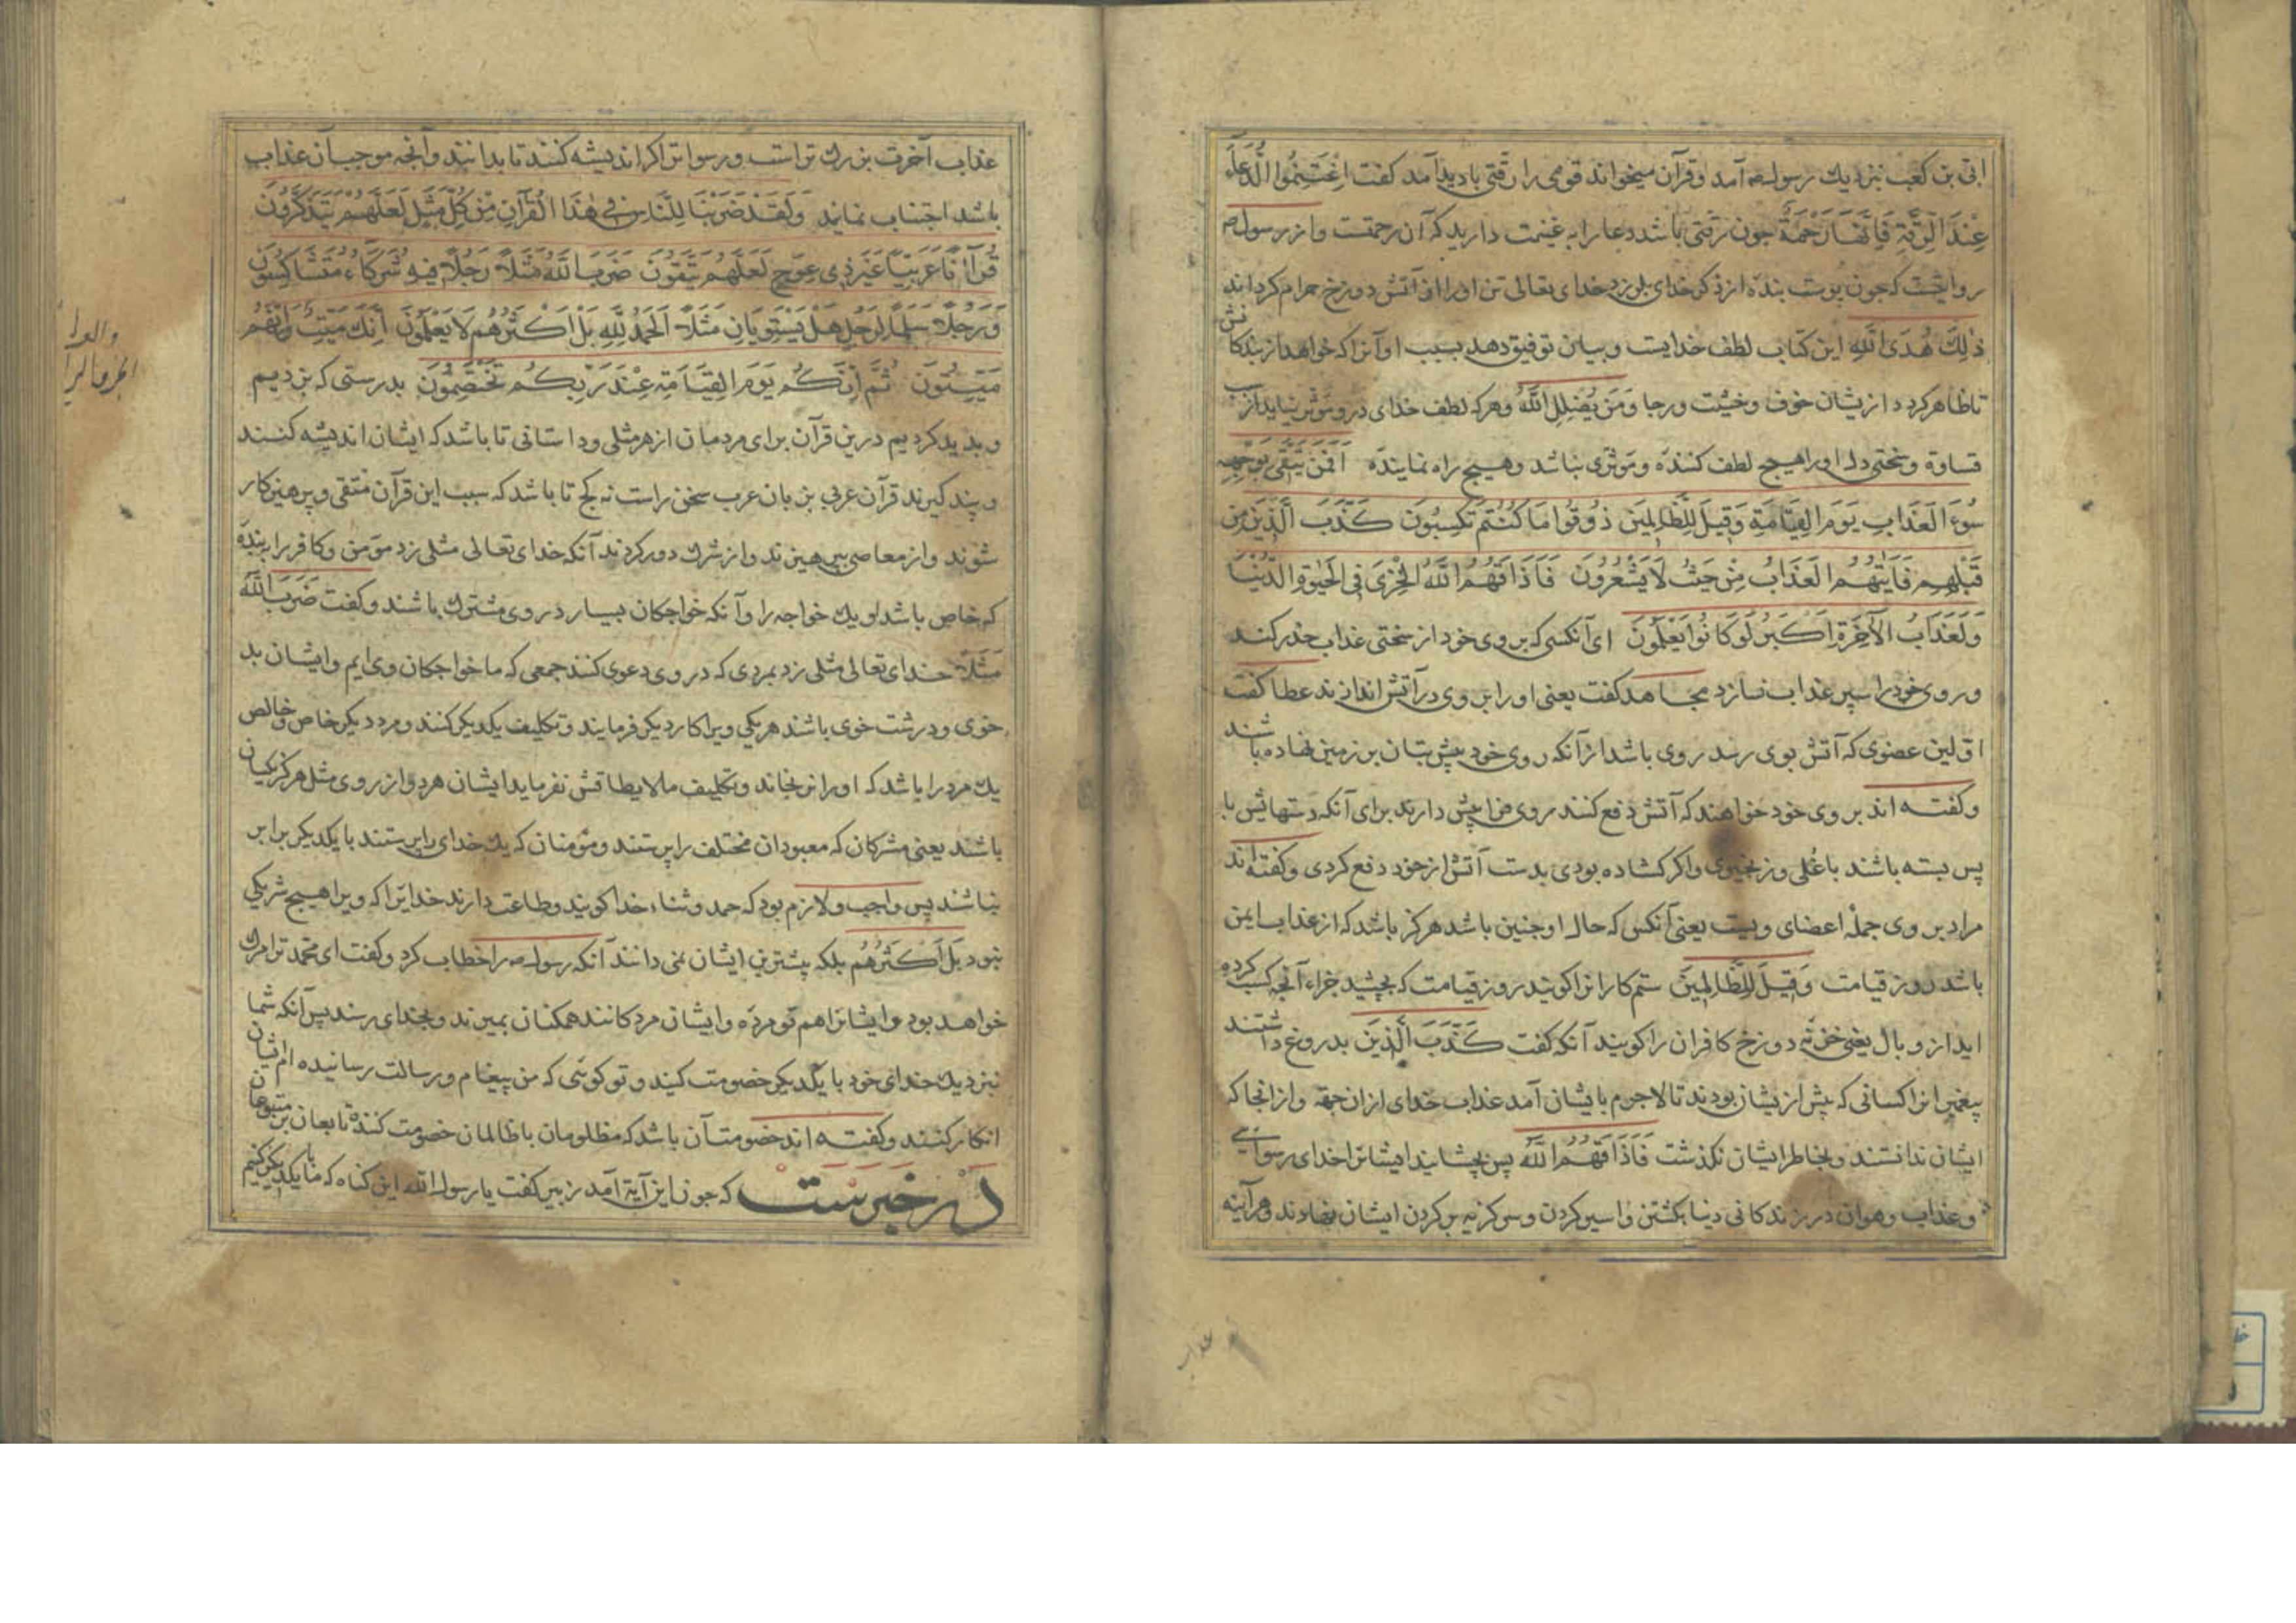 ابی بن کعب بنزدیك رسول صه آمد و قرآن میخواند قومی را رقّتی بادید آمد کفت اِغْتَنِمُوا الدُّعَاءَ
عِنْدَ الرِّقَّةِ فَاِنَّهَا رَحْمَةٌ جون رقّتی باشد دعا را به غنیمت دارید که آن رحمتست و از رسول صه
روایتست که جون پوست بنده از ذکر خدای بلرزد خدای تعالی تن او را از آتش دوزخ حرام کرداند
ذٰلِكَ هُدَى اللّٰهِ این کتاب لطف خدایست و بیان توفیق دهد بسبب او آنرا که خواهد از بندکانش
تا ظاهر کردد ازیشان خوف و خشیت و رجا وَمَنْ يُضْلِلِ اللّٰهُ وهرکه لطف خدای درو مؤثر نیاید از سبب
قساوة و سختی دل او را هیچ لطف کننده و مؤثری نباشد و هیچ راه نماینده اَفَمَنْ يَتَّقِي بِوَجْهِهِ
سُوءَ الْعَذَابِ يَوْمَ الْقِيَامَةِ وَقِيلَ لِلظَّالِمِينَ ذُوقُوا مَا كُنْتُمْ تَكْسِبُونَ كَذَّبَ الَّذِينَ مِنْ
قَبْلِهِمْ فَاَتٰيهُمُ الْعَذَابُ مِنْ حَيْثُ لَا يَشْعُرُونَ فَاَذَاقَهُمُ اللّٰهُ الْخِزْيَ فِي الْحَيٰوةِ الدُّنْيَا
وَلَعَذَابُ الْآخِرَةِ اَكْبَرُ لَوْ كَانُوا يَعْلَمُونَ ای آنکسی که بروی خود از سختی عذاب حذر کند
و روی خود را سپر عذاب سازد مجاهد کفت یعنی او را بر وی در آتش اندازند عطا کفت
اوّلین عضوی که آتش بوی رسد روی باشد از آنکه روی خود پیش بتان بر زمین نهاده باشند
و کفته اند بر وی خود خواهند که آتش دفع کنند روی فرا پیش دارند برای آنکه دستهایش با
پس بسته باشند با غُلی و زنجیری و اکر کشاده بودی بدست آتش از خود دفع کردی و کفته اند
مراد بر وی جملهٔ اعضای ویست یعنی آنکس که حال او جنین باشد هرکز باشد که از عذاب ایمن
باشد روز قیامت وَقِيلَ لِلظَّالِمِينَ ستم کارانرا کویند روز قیامت که بچشید جزاء آنچه کسب کرده
اید از وبال یعنی خزنهٔ دوزخ کافران را کویند آنکه کفت كَذَّبَ الَّذِينَ بدروغ داشتند
پیغمبرانرا کسانی که پیش ازیشان بودند تا لاجرم بایشان آمد عذاب خدای ازان جهة و از انجا که
ایشان ندانستند و بخاطر ایشان نکذشت فَاَذَاقَهُمُ اللّٰهُ پس بچشانید ایشانرا خدای رسوایی
و عذاب و هوان در زندکانی دنیا بکشتن و اسیر کردن و سر کزیه بر کردن ایشان نهادند و هرآینه
عذاب
عذاب آخرت بزرك تراست و رسواتر اکر اندیشه کنند تا بدانند و آنچه موجب آن عذاب
باشد اجتناب نمایند وَلَقَدْ ضَرَبْنَا لِلنَّاسِ فِي هٰذَا الْقُرْآنِ مِنْ كُلِّ مَثَلٍ لَعَلَّهُمْ يَتَذَكَّرُونَ
قُرْآنًا عَرَبِيًّا غَيْرَ ذِي عِوَجٍ لَعَلَّهُمْ يَتَّقُونَ ضَرَبَ اللّٰهُ مَثَلًا رَجُلًا فِيهِ شُرَكَاءُ مُتَشَاكِسُونَ
وَرَجُلًا سَلَمًا لِرَجُلٍ هَلْ يَسْتَوِيَانِ مَثَلًا اَلْحَمْدُ لِلّٰهِ بَلْ اَكْثَرُهُمْ لَا يَعْلَمُونَ اِنَّكَ مَيِّتٌ وَاِنَّهُمْ
مَيِّتُونَ ثُمَّ اِنَّكُمْ يَوْمَ الْقِيَامَةِ عِنْدَ رَبِّكُمْ تَخْتَصِمُونَ بدرستی که بزدیم
و پدید کردیم درین قرآن برای مردمان از هر مثلی و داستانی تا باشد که ایشان اندیشه کنند
و پند کیرند قرآن عربی بزبان عرب سخنی راست نه کج تا باشد که سبب این قرآن متقی و پرهیزکار
شوند و از معاصی بپرهیزند و از شرك دور کردند آنکه خدای تعالی مثلی زد مؤمن و کافر را به بندهٔ
که خاص باشد لو یك خواجه را و آنکه خواجکان بسیار در وی مشترك باشند و کفت ضَرَبَ اللّٰهُ
مَثَلًا خدای تعالی مثلی زد بمردی که در وی دعوی کنند جمعی که ما خواجکان وی ایم و ایشان بد
خوی و درشت خوی باشند هر یکی ویرا کار دیکر فرمایند و تکلیف یکدیکر کنند و مرد دیکر خاص و خالص
یك مرد را باشد که او را نرنجاند و تکلیف ما لا یطاقش نفرماید ایشان هر دو از روی مثل هرکز یکسان
باشند یعنی مشرکان که معبودان مختلف را پرستند و مؤمنان که یك خدای را پرستند با یکدیکر برابر
نباشند پس واجب و لازم بود که حمد و ثناء خدا کویند و طاعت دارند خدایرا که ویرا هیچ شریکی
نبود بَلْ اَكْثَرُهُمْ بلکه بیشترین ایشان نمی دانند آنکه رسول صه را خطاب کرد و کفت ای محمد ترا مرك
خواهد بود و ایشانرا هم تو مرده و ایشان مردکانند همکنان بمیرند و بخدای رسند پس آنکه شما
بنزدیك خدای خود با یکدیکر خصومت کنید و تو کوئی که من پیغام و رسالت رسانیده ام ایشان
انکار کنند و کفته اند خصومت آن باشد که مظلومان با ظالمان خصومت کنند و تابعان بر متبوعان
در خبرست که جون این آیة آمد زبیر کفت یا رسول الله این کناه که ما با یکدیکر کنیم